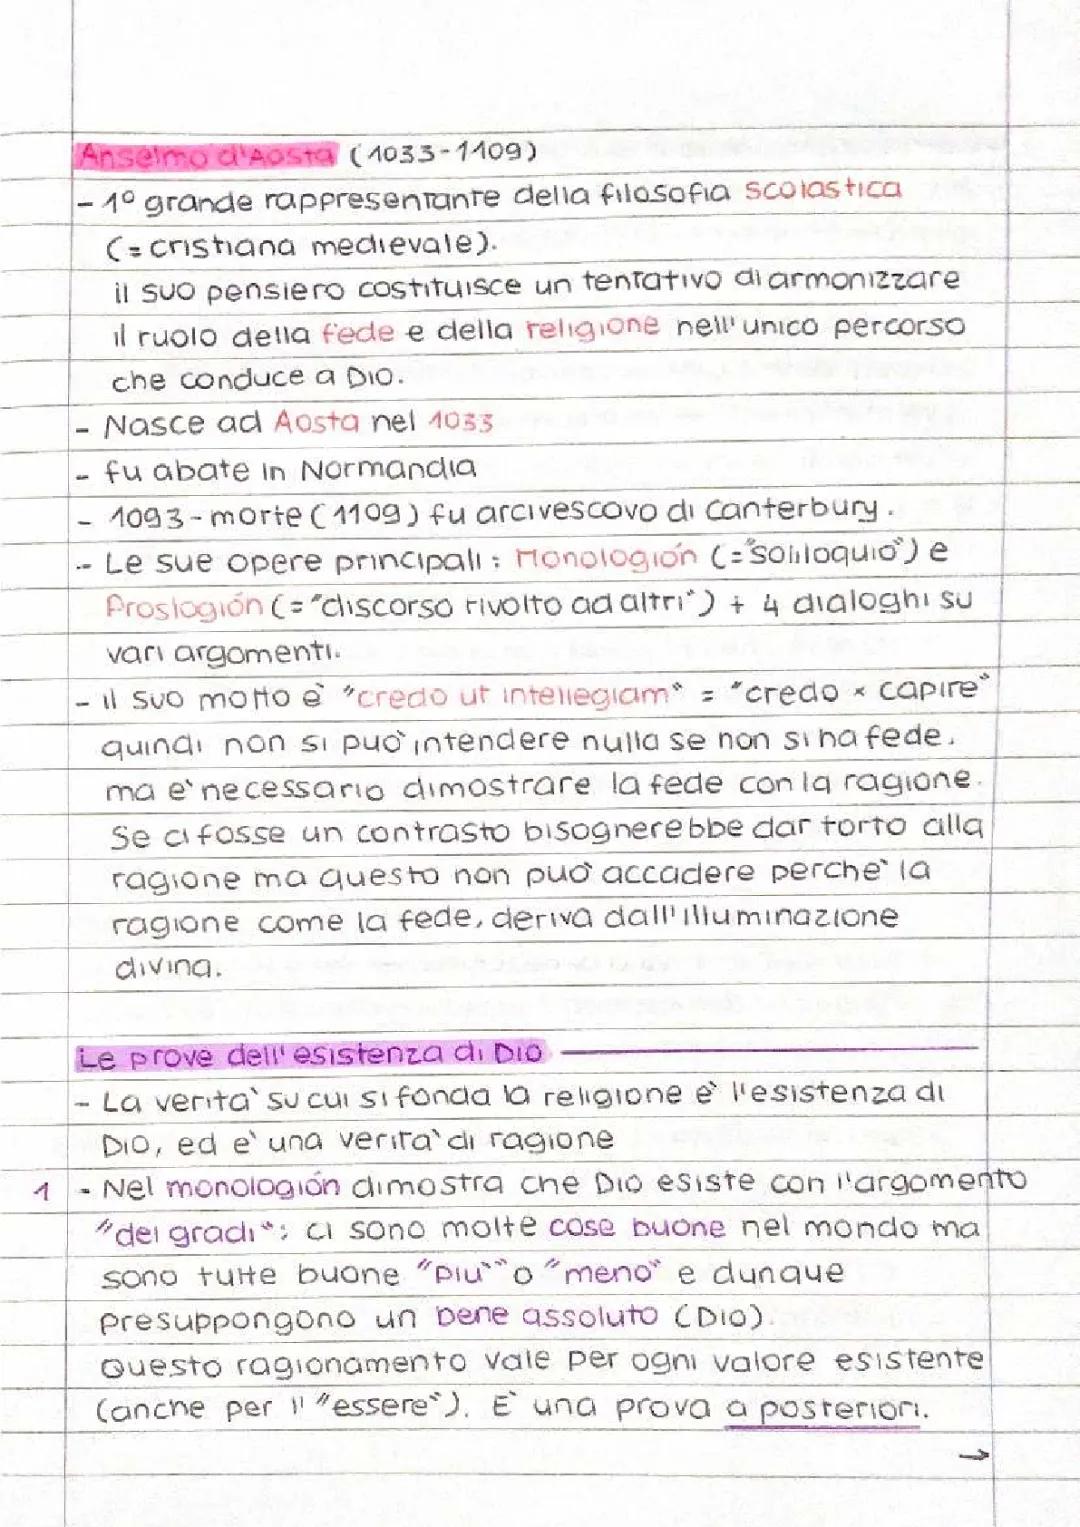 Anselmo d'Aosta (1033-1109)
- 1º grande rappresentante della filosofia scolastica
(= cristiana medievale).
il suo pensiero costituisce un tentativo di armonizzare
il ruolo della fede e della religione nell'unico percorso
che conduce a Dio.
- Nasce ad Aosta nel 1033
- fu abate in Normandia
- 1093 - morte (1109) fu arcivescovo di Canterbury.
- Le sue opere principali: Monologión (="soliloquio") e
Proslogión (= "discorso rivolto ad altri") + 4 dialoghi su
vari argomenti.
- il suo motto è "credo ut intellegiam" = "credo × capire"
quindi non si può intendere nulla se non si ha fede.
ma e' necessario dimostrare la fede con la ragione.
Se ci fosse un contrasto bisognerebbe dar torto alla
ragione ma questo non può accadere perche' la
ragione come la fede, deriva dall'illuminazione
divina.
Le prove dell'esistenza di Dio
- La verita' su cui si fonda la religione e' l'esistenza di
Dio, ed e' una verita' di ragione
1 - Nel monologión dimostra che Dio esiste con l'argomento
"dei gradi": ci sono molte cose buone nel mondo ma
sono tutte buone "piu'" o "meno" e dunque
presuppongono un bene assoluto (Dio).
Questo ragionamento vale per ogni valore esistente
(anche per l'"essere"). E' una prova a posteriori.
→